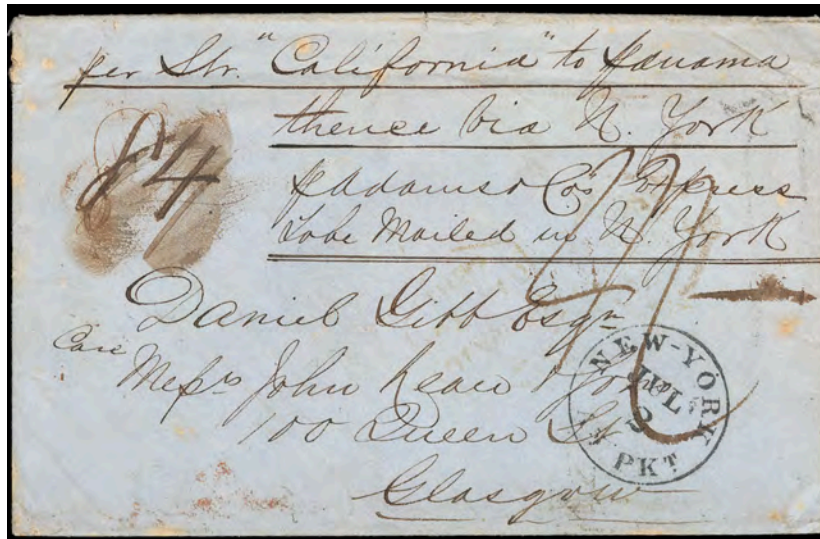 per Str. "California" to Panama
thence via N. York
84
p Adams & Co's Express
To be Mailed in N. York
Daniel Gibb Esqr
Care
Messrs John & Co
100 Queen St
Glasgow
NEW-YORK
JUL
2
PKT